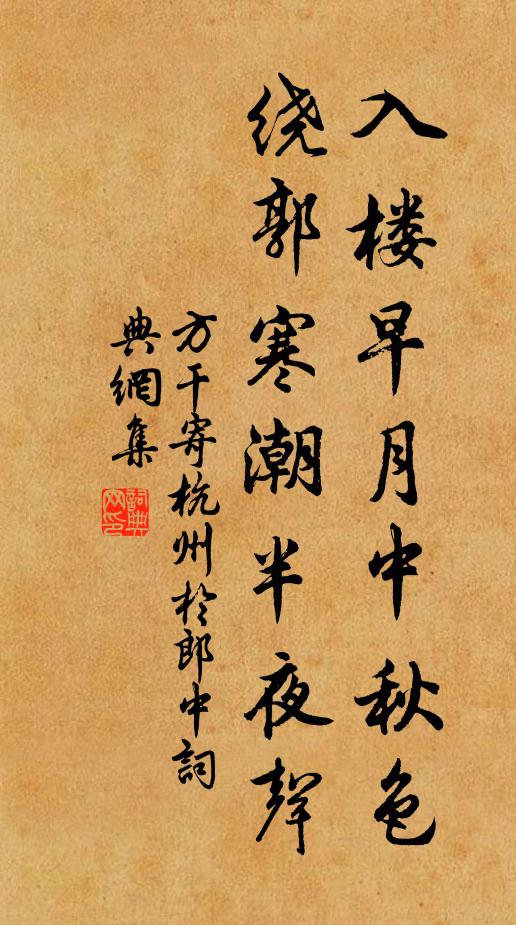 入楼早月中秋色
绕郭寒潮半夜聲
方干寄杭州於郎中詞
典網集
詞典網印